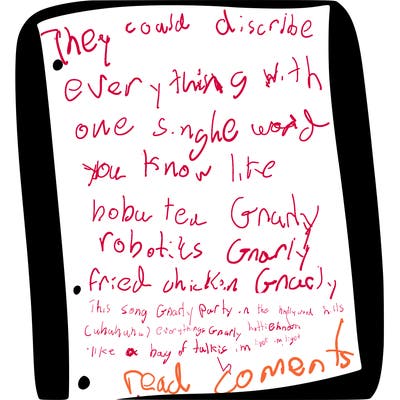 They could discribe
everything with
one singhe word
you know like
boba tea Gnarly
robotics Gnarly
fried chicken Gnarly
This song Gnarly Party in the hollywood hills
(uhuhuhu) everythings Gnarly
like a bag of takis im
read coments